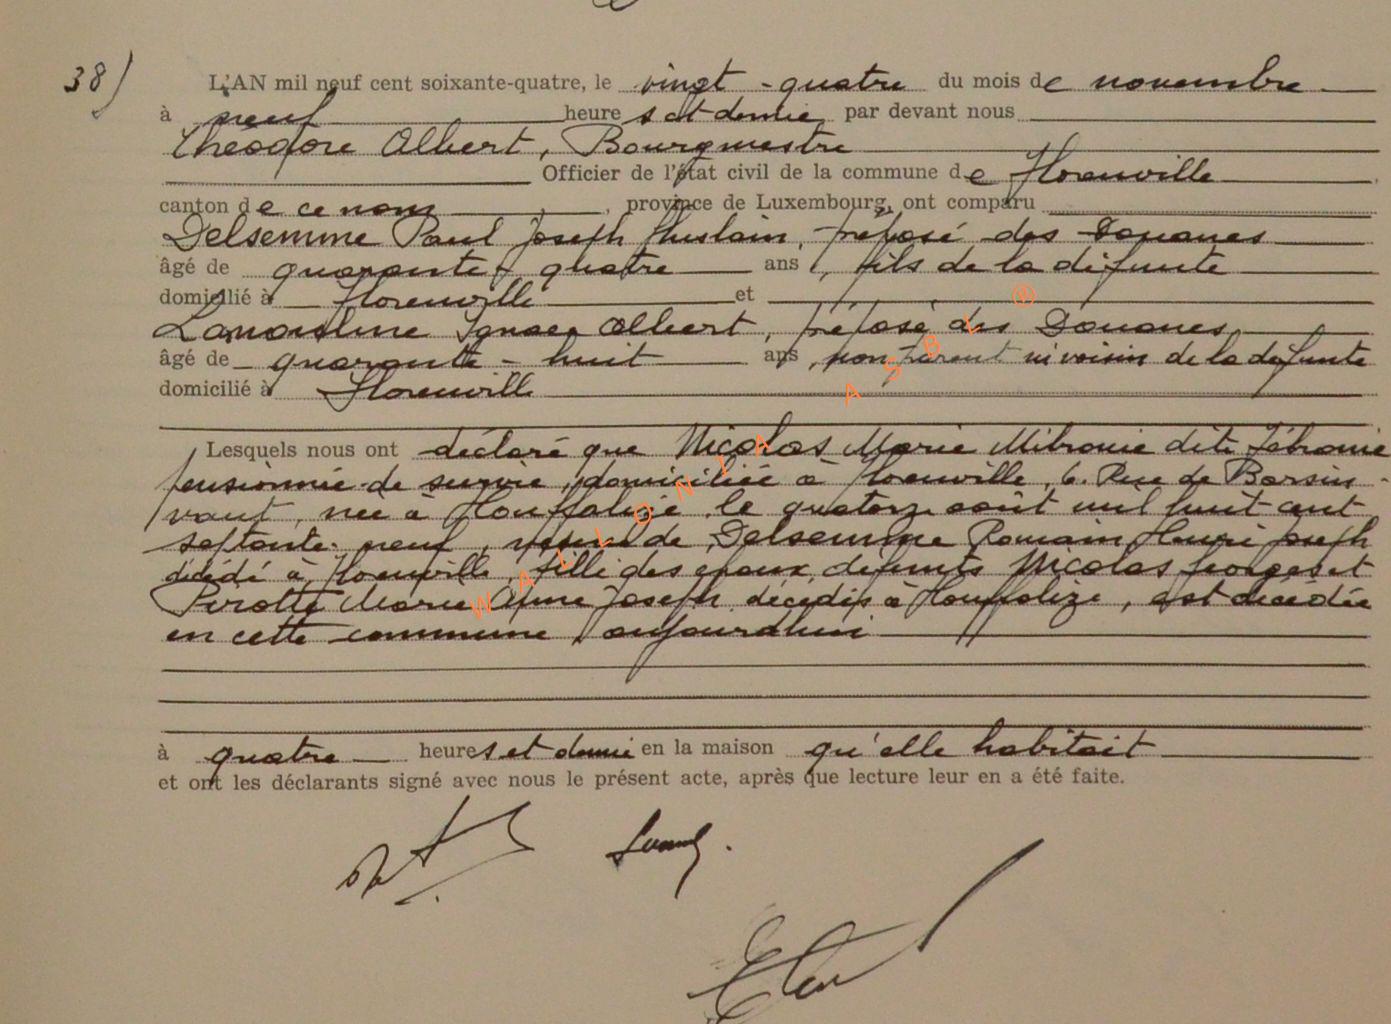 38)
L'AN mil neuf cent soixante-quatre, le vingt-quatre du mois de novembre
à neuf heures et demie, par devant nous
Théodore Albert, Bourgmestre
Officier de l'état civil de la commune de Florenville
canton de ce nom, province de Luxembourg, ont comparu
Delsemme Paul Joseph Ghislain, préposé des Douanes
âgé de quarante-quatre ans, fils de la défunte
domicilié à Florenville et
Ignace Albert, préposé des Douanes,
âgé de quarante-huit ans, non parent ni voisin de la défunte
domicilié à Florenville
Lesquels nous ont déclaré que Nicolas Marie dite
pensionnée de survie, domiciliée à Florenville, 6. Rue de Barsin-
vaut, née à Houffalize le quatorze août mil huit cent
septante-neuf, veuve de Delsemme Romain Henri Joseph
décédé à Florenville, fille des époux défunts Nicolas Georges et
Pirotte Marie Anne Joseph décédés à Houffalize, est décédée
en cette commune aujourd'hui
à quatre heures et demie en la maison qu'elle habitait
et ont les déclarants signé avec nous le présent acte, après que lecture leur en a été faite.
WALLONIA ASBL ®